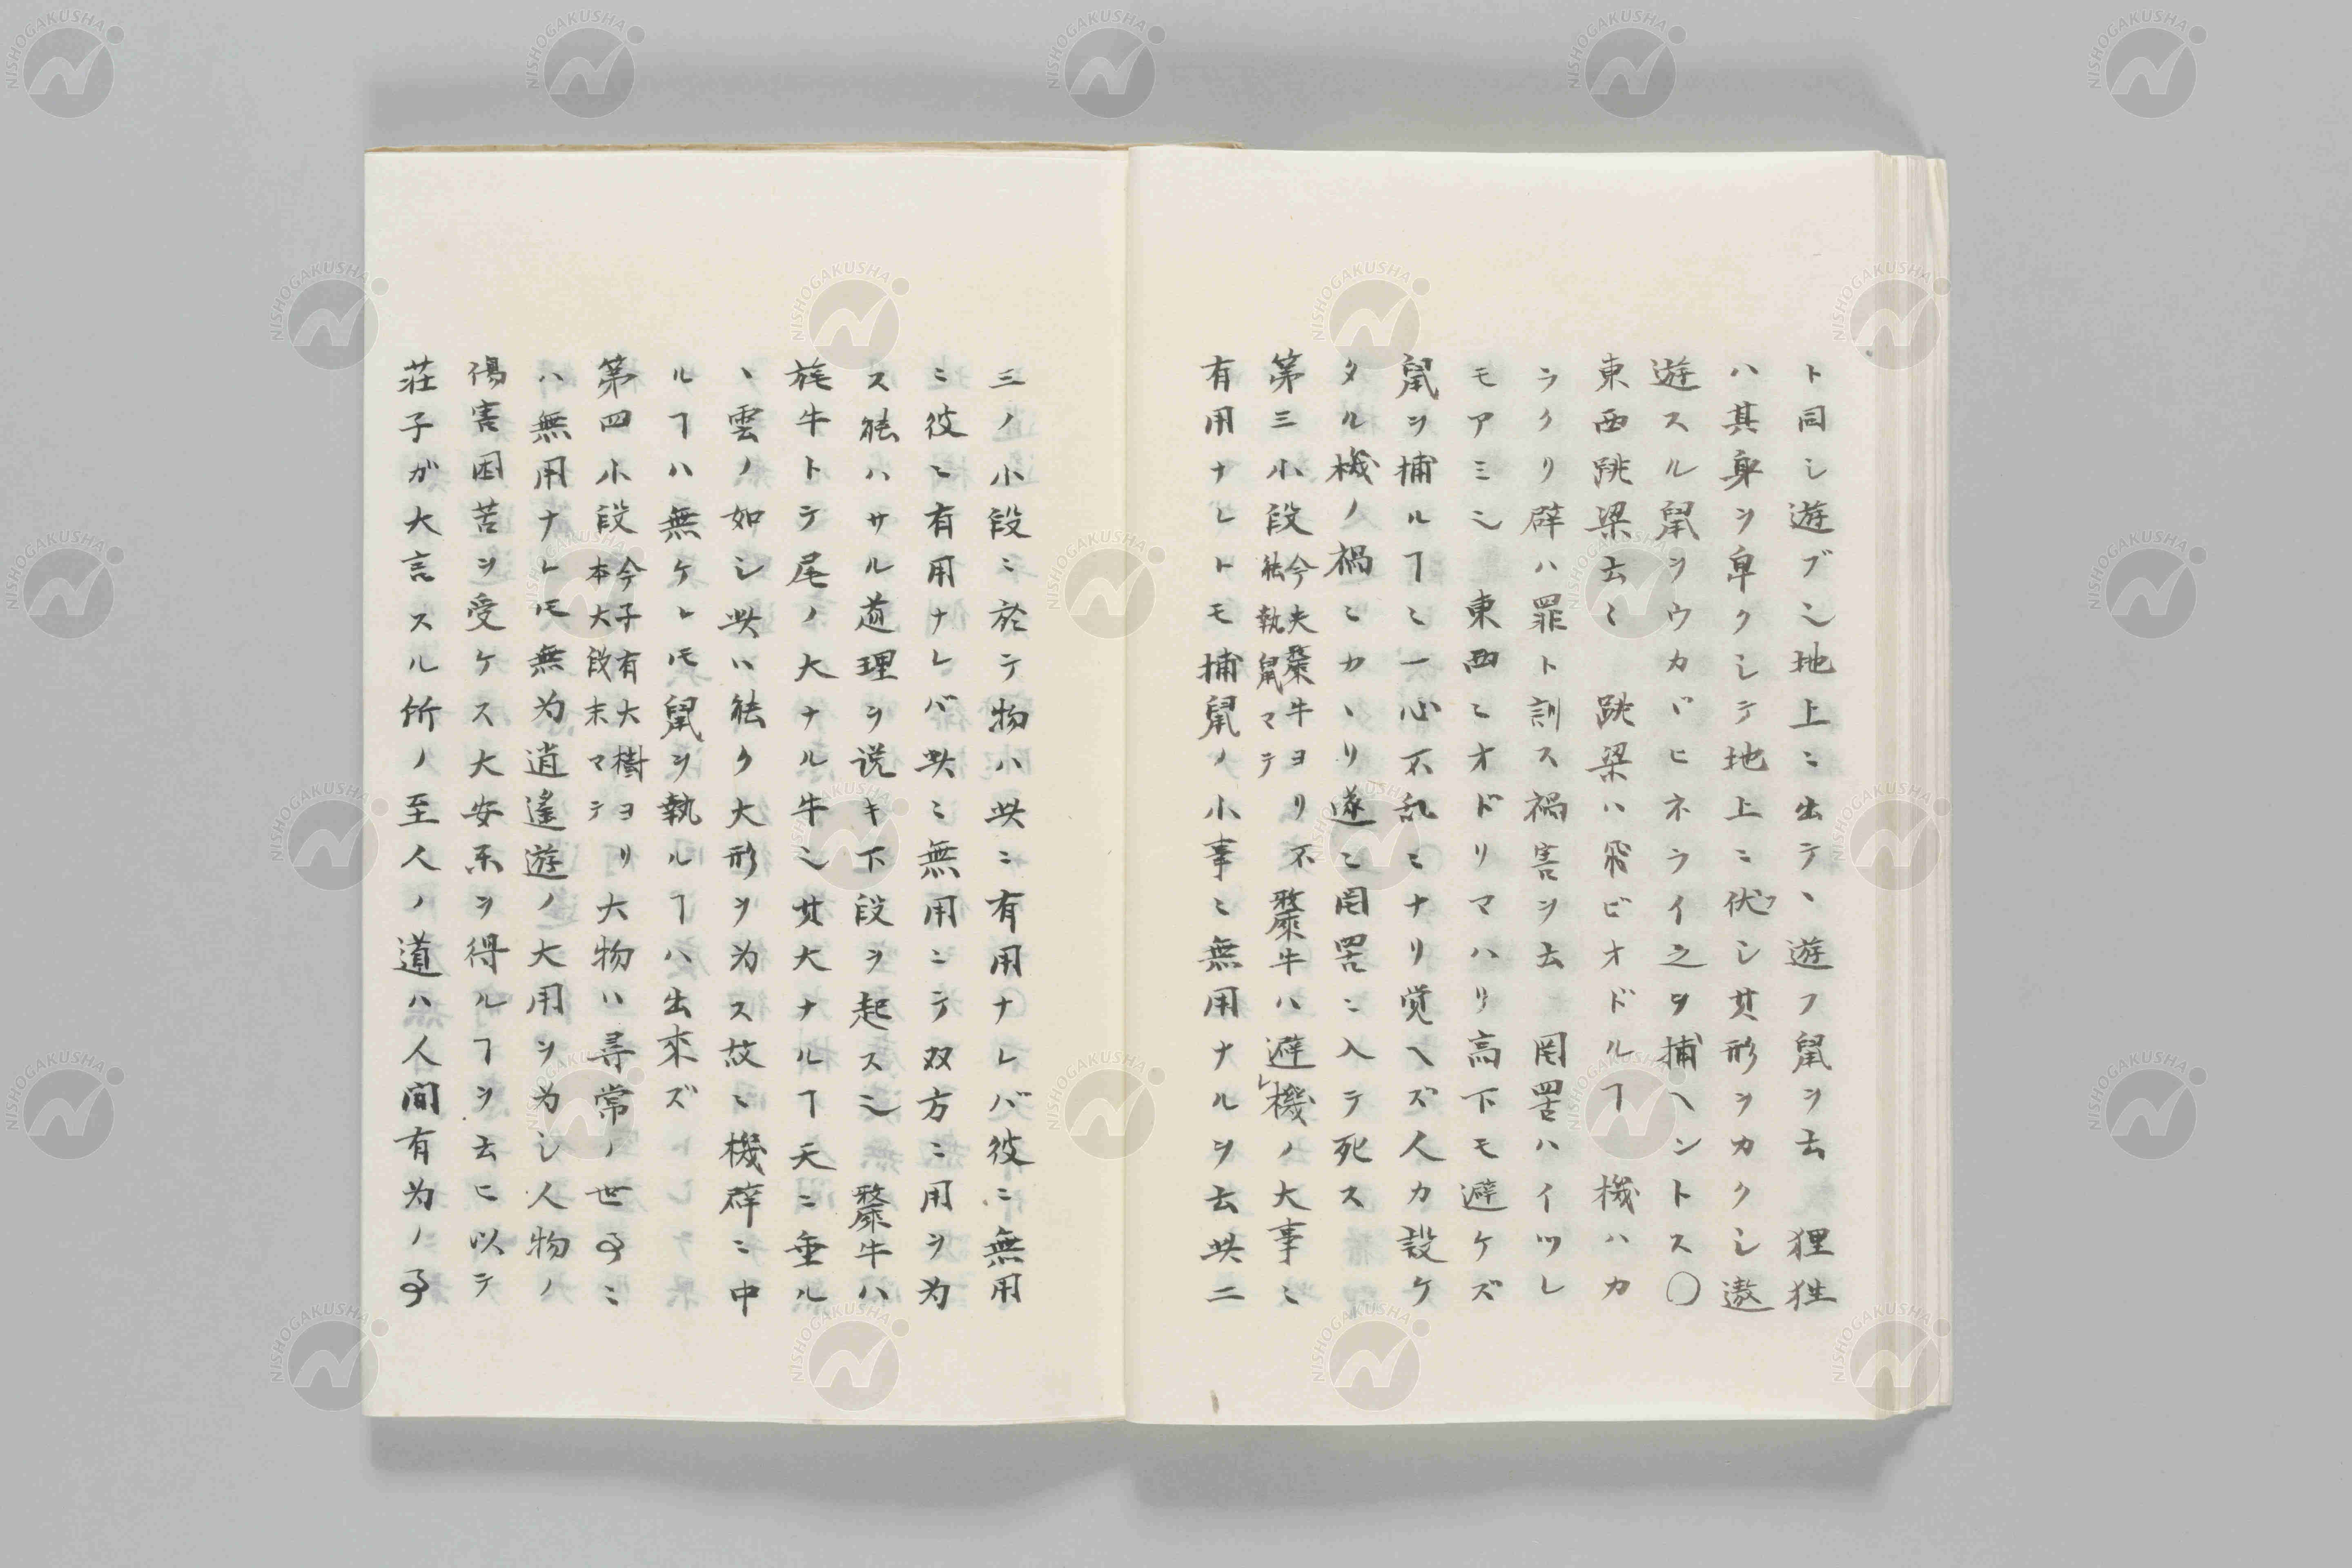 ト同シ遊ブ〻地上ニ出テ丶遊フ鼠ヲ云　狸狌
ハ其身ヲ卑クシテ地上ニ伏シ其形ヲカクシ遨
遊スル鼠ヲウカヾヒネライ之ヲ捕ヘントス〇
東西跳梁云〻　跳梁ハ飛ビオドルヿ　機ハカ
ラクリ辟ハ罪ト訓ス禍害ヲ云　罔罟ハイツレ
モアミ〻　東西ニオドリマハリ高下モ避ケズ
鼠ヲ捕ルヿニ一心不乱ニナリ覚ヘズ人カ設ケ
タル機ノ禍ニカヽリ遂ニ罔罟ニ入テ死ス
第三小段今夫斄牛ヨリ不能執鼠マテ　斄牛ハ避機ノ大事ニ
有用ナレトモ捕鼠ノ小事ニ無用ナルヲ云此二
三ノ小段ニ於テ物ハ此ニ有用ナレバ彼ニ無用
ニ彼ニ有用ナレバ此ニ無用ニテ双方ニ用ヲ為
ス能ハサル道理ヲ説キ下段ヲ起ス〻　斄牛ハ
旄牛トテ尾ノ大ナル牛〻其大ナルヿ天ニ垂ル
丶雲ノ如シ此ハ能ク大形ヲ為ス故ニ機辟ニ中
ルヿハ無ケレ𪜈鼠ヲ執ルヿハ出來ズ
第四小段今子有大樹ヨリ本大段末マテ　大物ハ尋常ノ世事ニ
ハ無用ナレ𪜈無为逍遙遊ノ大用ヲ为シ人物ノ
傷害困苦ヲ受ケス大安楽ヲ得ルヿヲ云ヒ以テ
荘子ガ大言スル所ノ至人ノ道ハ人間有为ノ事